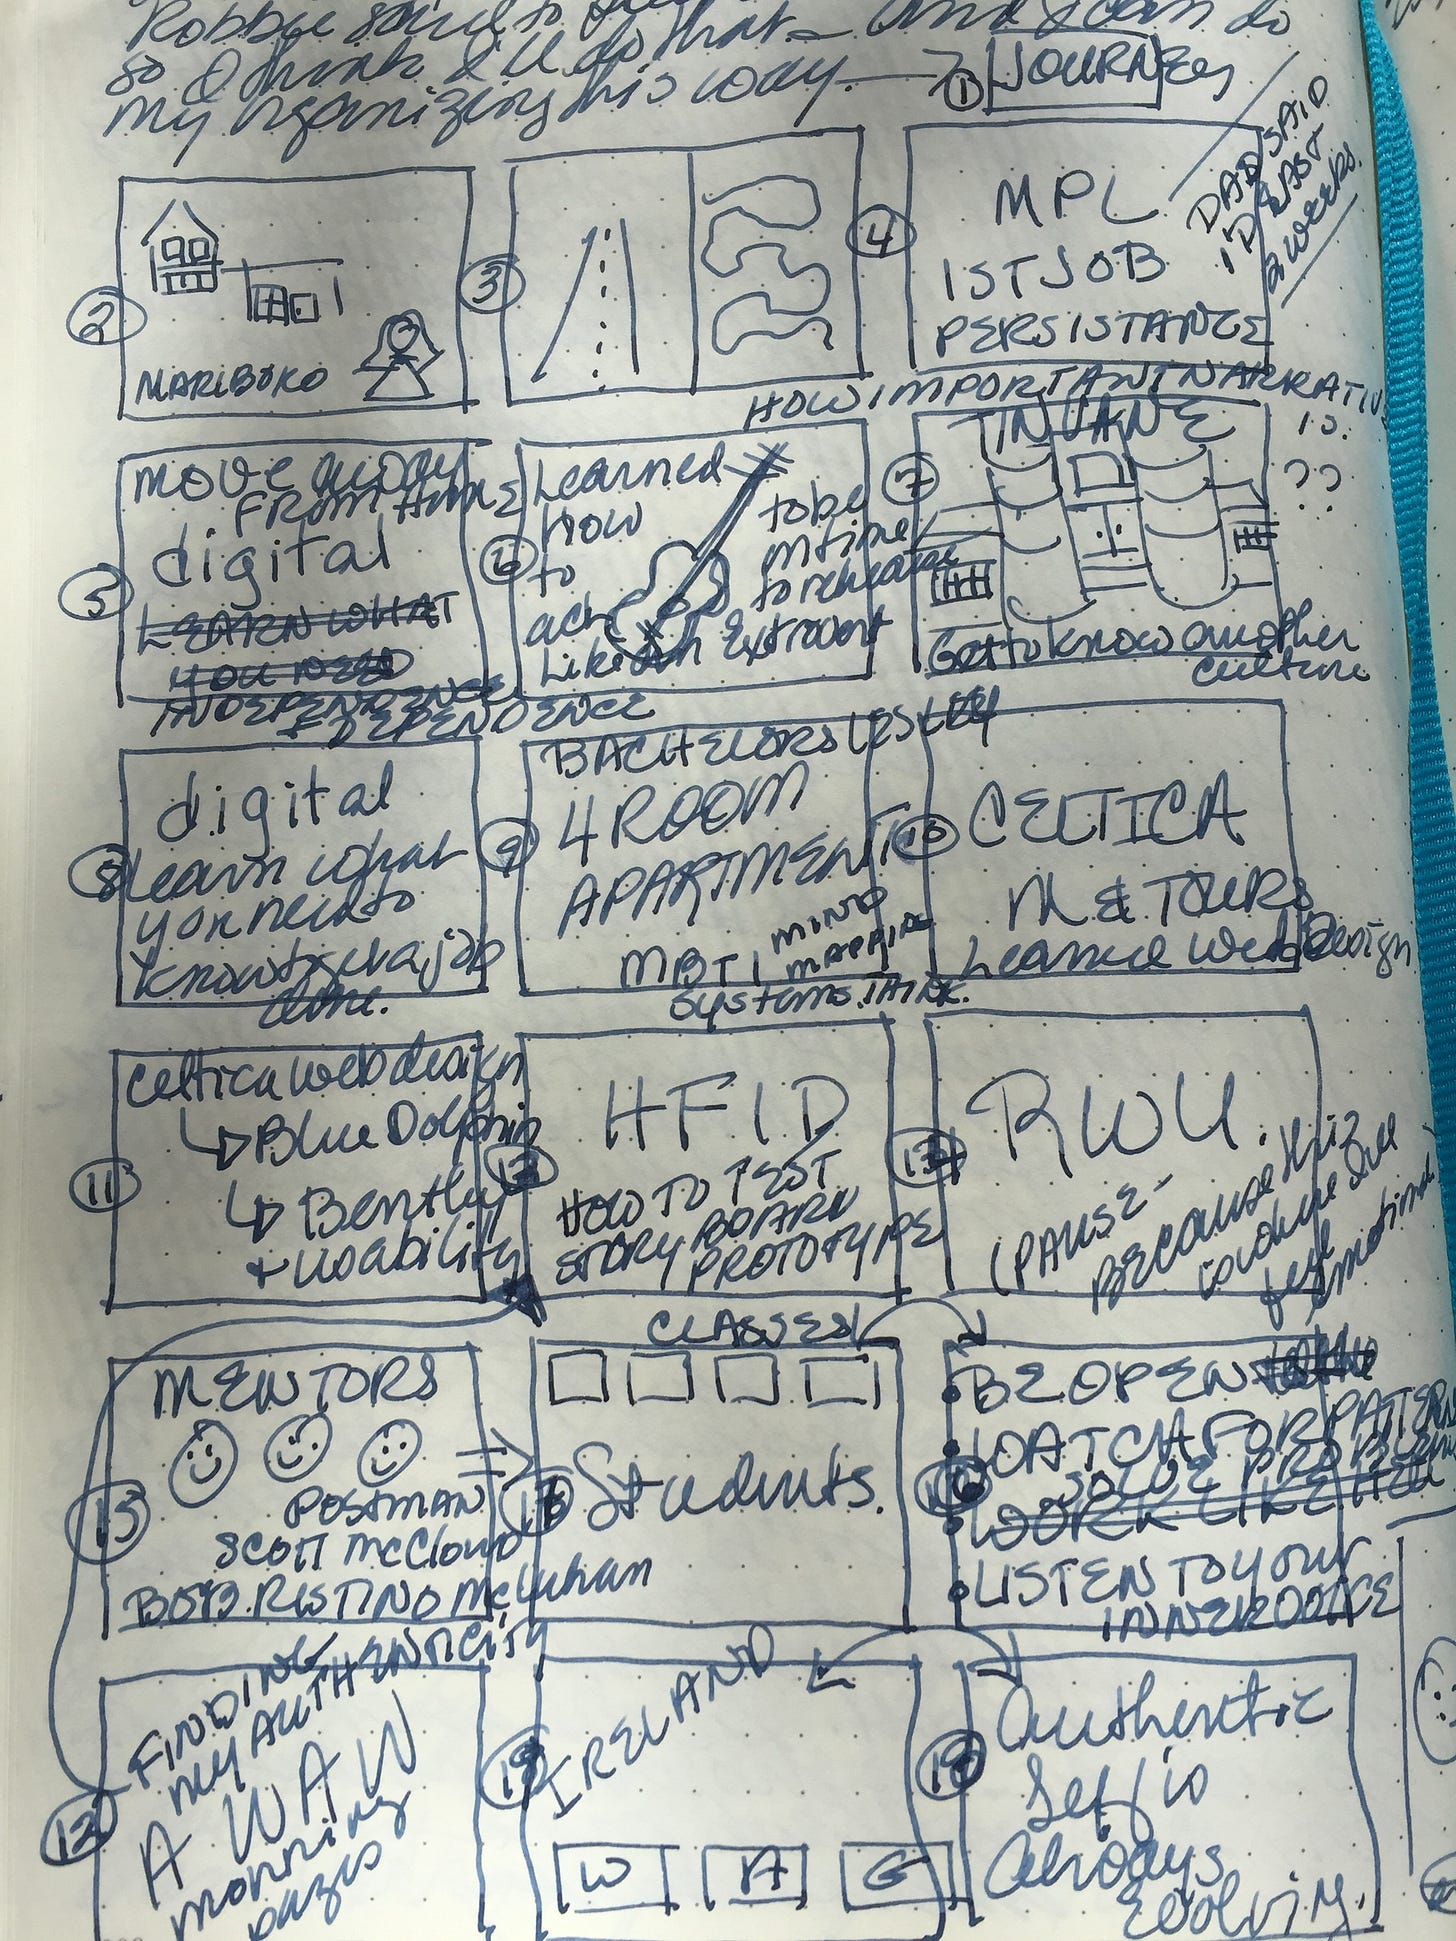 Robbie said to
so I think I'll do that - And I can do
my organizing this way. → ① JOURNEY
DAD SAID
I'D LAST
2 weeks.
②
MARLBORO
③
④
MPL
1ST JOB
PERSISTANCE
HOW IMPORTANT NARRATIVE
IS.
??
⑤
move away
FROM HOME
digital
LEARN WHAT
YOU NEED
INDEPENDENCE
& DEPENDENCE
⑥
Learned
How
to
act
Like an Extrovert
to be
on time
to rehearse
⑦
Get to know another
culture
⑧
digital
Learn what
you need to
know to get a job
done.
⑨
BACHELORS LESLEY
4 ROOM
APARTMENT
MBTI MIND
MAPPING
Systems THINK.
⑩
CELTICA
M & TOURS
Learned Web Design
⑪
Celtica web design
↳ Blue Dolphin
↳ Bentley
+ usability
HFID
HOW TO TEST
STORYBOARD
PROTOTYPE
RWU.
(PAUSE-
BECAUSE this
is where
emotional
⑮
MENTORS
POSTMAN
SCOTT McCLOUD
McLuhan
CLASSES
Students.
BE OPEN
WATCH FOR PATTERNS
SOLVE PROBLEMS
WORK LIKE HELL
LISTEN TO your
INNER VOICE
FINDING
my AUTHENTICITY
A WAW
morning
pages
IRELAND
W A G
Authentic
Self is
Always
Evolving.